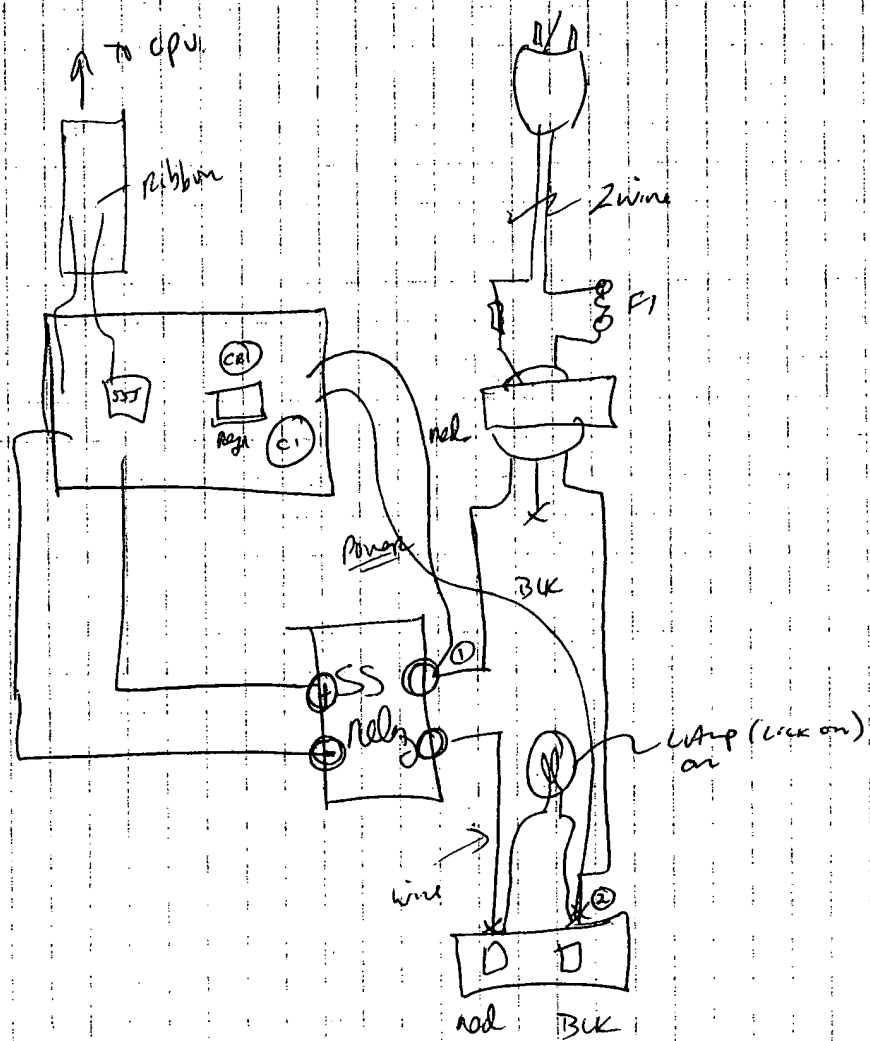 To CPU
Ribbon
2 wire
F1
CR1
SSJ
Regr
C1
red
Power
BLK
①
+ SS
- Relay
LAmp (Lick on)
on
wire
②
red BLK